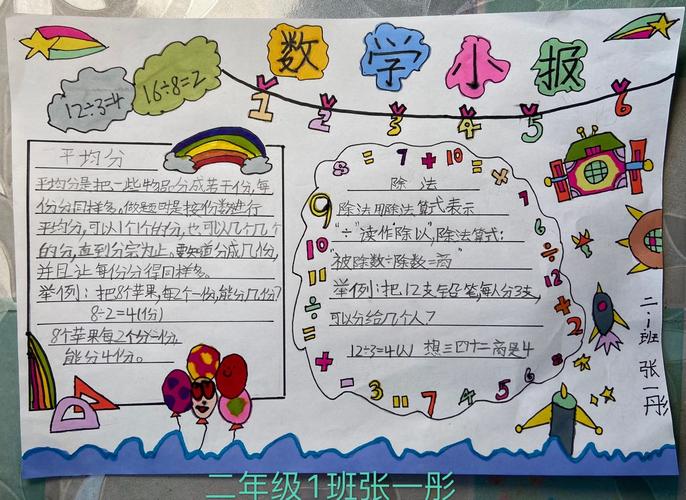 数学小报
12÷3=4
16÷8=2
1 2 3 4 5 6
平均分
平均分是把一些物品分成若干份,每
份分同样多。做题时是按份数进行
平均分,可以1个1个的分,也可以几个几个
的分,直到分完为止。要知道分成几份,
并且让每份分得同样多。
举例:把8个苹果,每2个一份,能分几份?
8÷2=4(份)
8个苹果每2个分一份,
能分4份。
除法
除法用除法算式表示
"÷"读作"除以",除法算式:
"被除数÷除数=商"
举例:把12支铅笔,每人分3支,
可以分给几个人?
12÷3=4(人) 想三四十二商是4
8 = 7 + 10 = ×
7
6
÷
12
+
2
8
=
6
5
4
7
=
3
-
+
÷
=
10
9
二.1班 张一彤
二年级1班张一彤